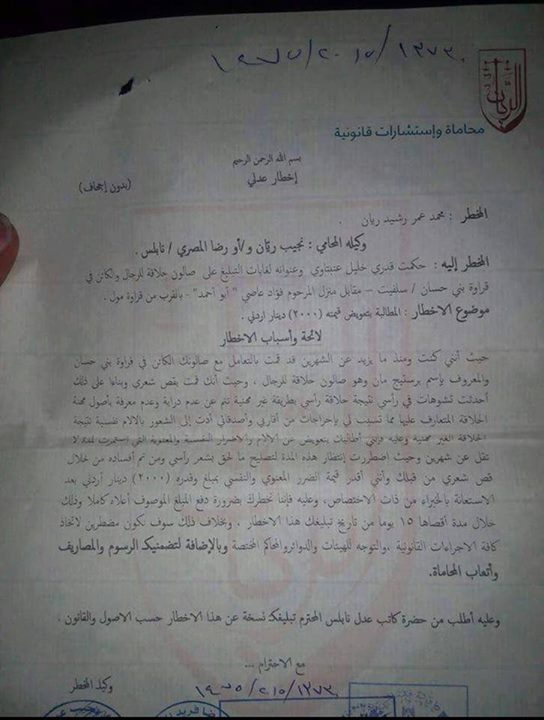 ١٩٦٧/٢٠١٥/١٣٧٣٠
الريان
محاماة وإستشارات قانونية
بسم الله الرحمن الرحيم
إخطار عدلي
(بدون إجحاف)
المخطر : محمد عمر رشيد ريان .
وكيله المحامي : نجيب ريان و/أو رضا المصري / نابلس .
المخطر إليه : حكمت قدري خليل عنبتاوي وعنوانه لغايات التبليغ على صالون حلاقة للرجال والكائن في
قراوة بني حسان / سلفيت – مقابل منزل المرحوم فؤاد عاصي " أبو أحمد" - بالقرب من قراوة مول .
موضوع الاخطار : المطالبة بتعويض قيمته (٢٠٠٠) دينار اردني .
لائحة وأسباب الاخطار
حيث أنني كنت ومنذ ما يزيد عن الشهرين قد قمت بالتعامل مع صالونك الكائن في قراوة بني حسان
والمعروف بإسم برستيج مان وهو صالون حلاقة للرجال ، وحيث أنك قمت بقص شعري وبناءا على ذلك
أحدثت تشوهات في رأسي نتيجة حلاقة رأسي بطريقة غير مهنية تنم عن عدم دراية وعدم معرفة بأصول مهنة
الحلاقة المتعارف عليها مما تسببت لي بإحراجات من أقاربي وأصدقائي أدت إلى الشعور بالالام نفسية نتيجة
الحلاقة الغير مهنية وعليه فإنني أطالبك بتعويض عن الالام والاضرار النفسية والمعنوية التي استمرت لمدة لا
تقل عن شهرين وحيث اضطررت إنتظار هذه المدة لتصليح ما لحق بشعر رأسي ومن تم أفساده من خلال
قص شعري من قبلك وأنني أقدر قيمة الضرر المعنوي والنفسي بمبلغ وقدره (٢٠٠٠) دينار أردني بعد
الاستعانة بالخبراء من ذات الاختصاص، وعليه فإننا نخطرك بضرورة دفع المبلغ الموصوف أعلاه كاملا وذلك
خلال مدة أقصاها ١٥ يوما من تاريخ تبليغك هذا الاخطار ، وبخلاف ذلك سوف نكون مضطرين لاتخاذ
كافة الاجراءات القانونية ،والتوجه للهيئات والدوائر والمحاكم المختصة وبالإضافة لتضمنيك الرسوم والمصاريف
وأتعاب المحاماة.
وعليه أطلب من حضرة كاتب عدل نابلس المحترم تبليغك نسخة عن هذا الاخطار حسب الاصول والقانون .
مع الاحترام ...
وكيل المخطر
المخطر